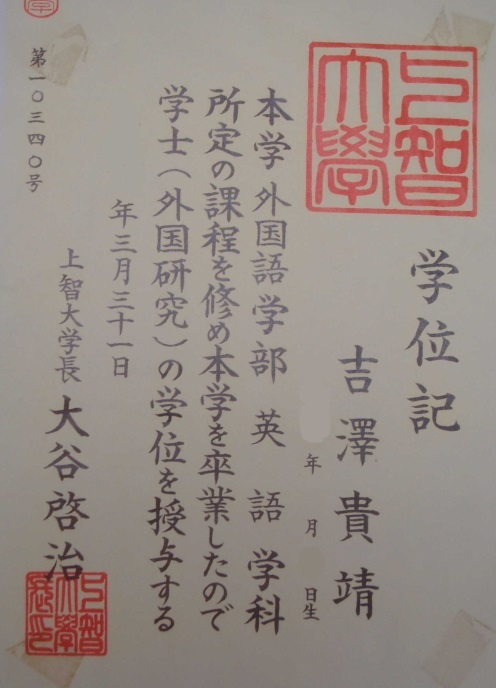 上智大學
学位記
吉澤貴靖
年 月 日生
本学外国語学部英語学科
所定の課程を修め本学を卒業したので
学士（外国研究）の学位を授与する
年三月三十一日
上智大学長 大谷啓治
上智大學長印
第一〇三四〇号